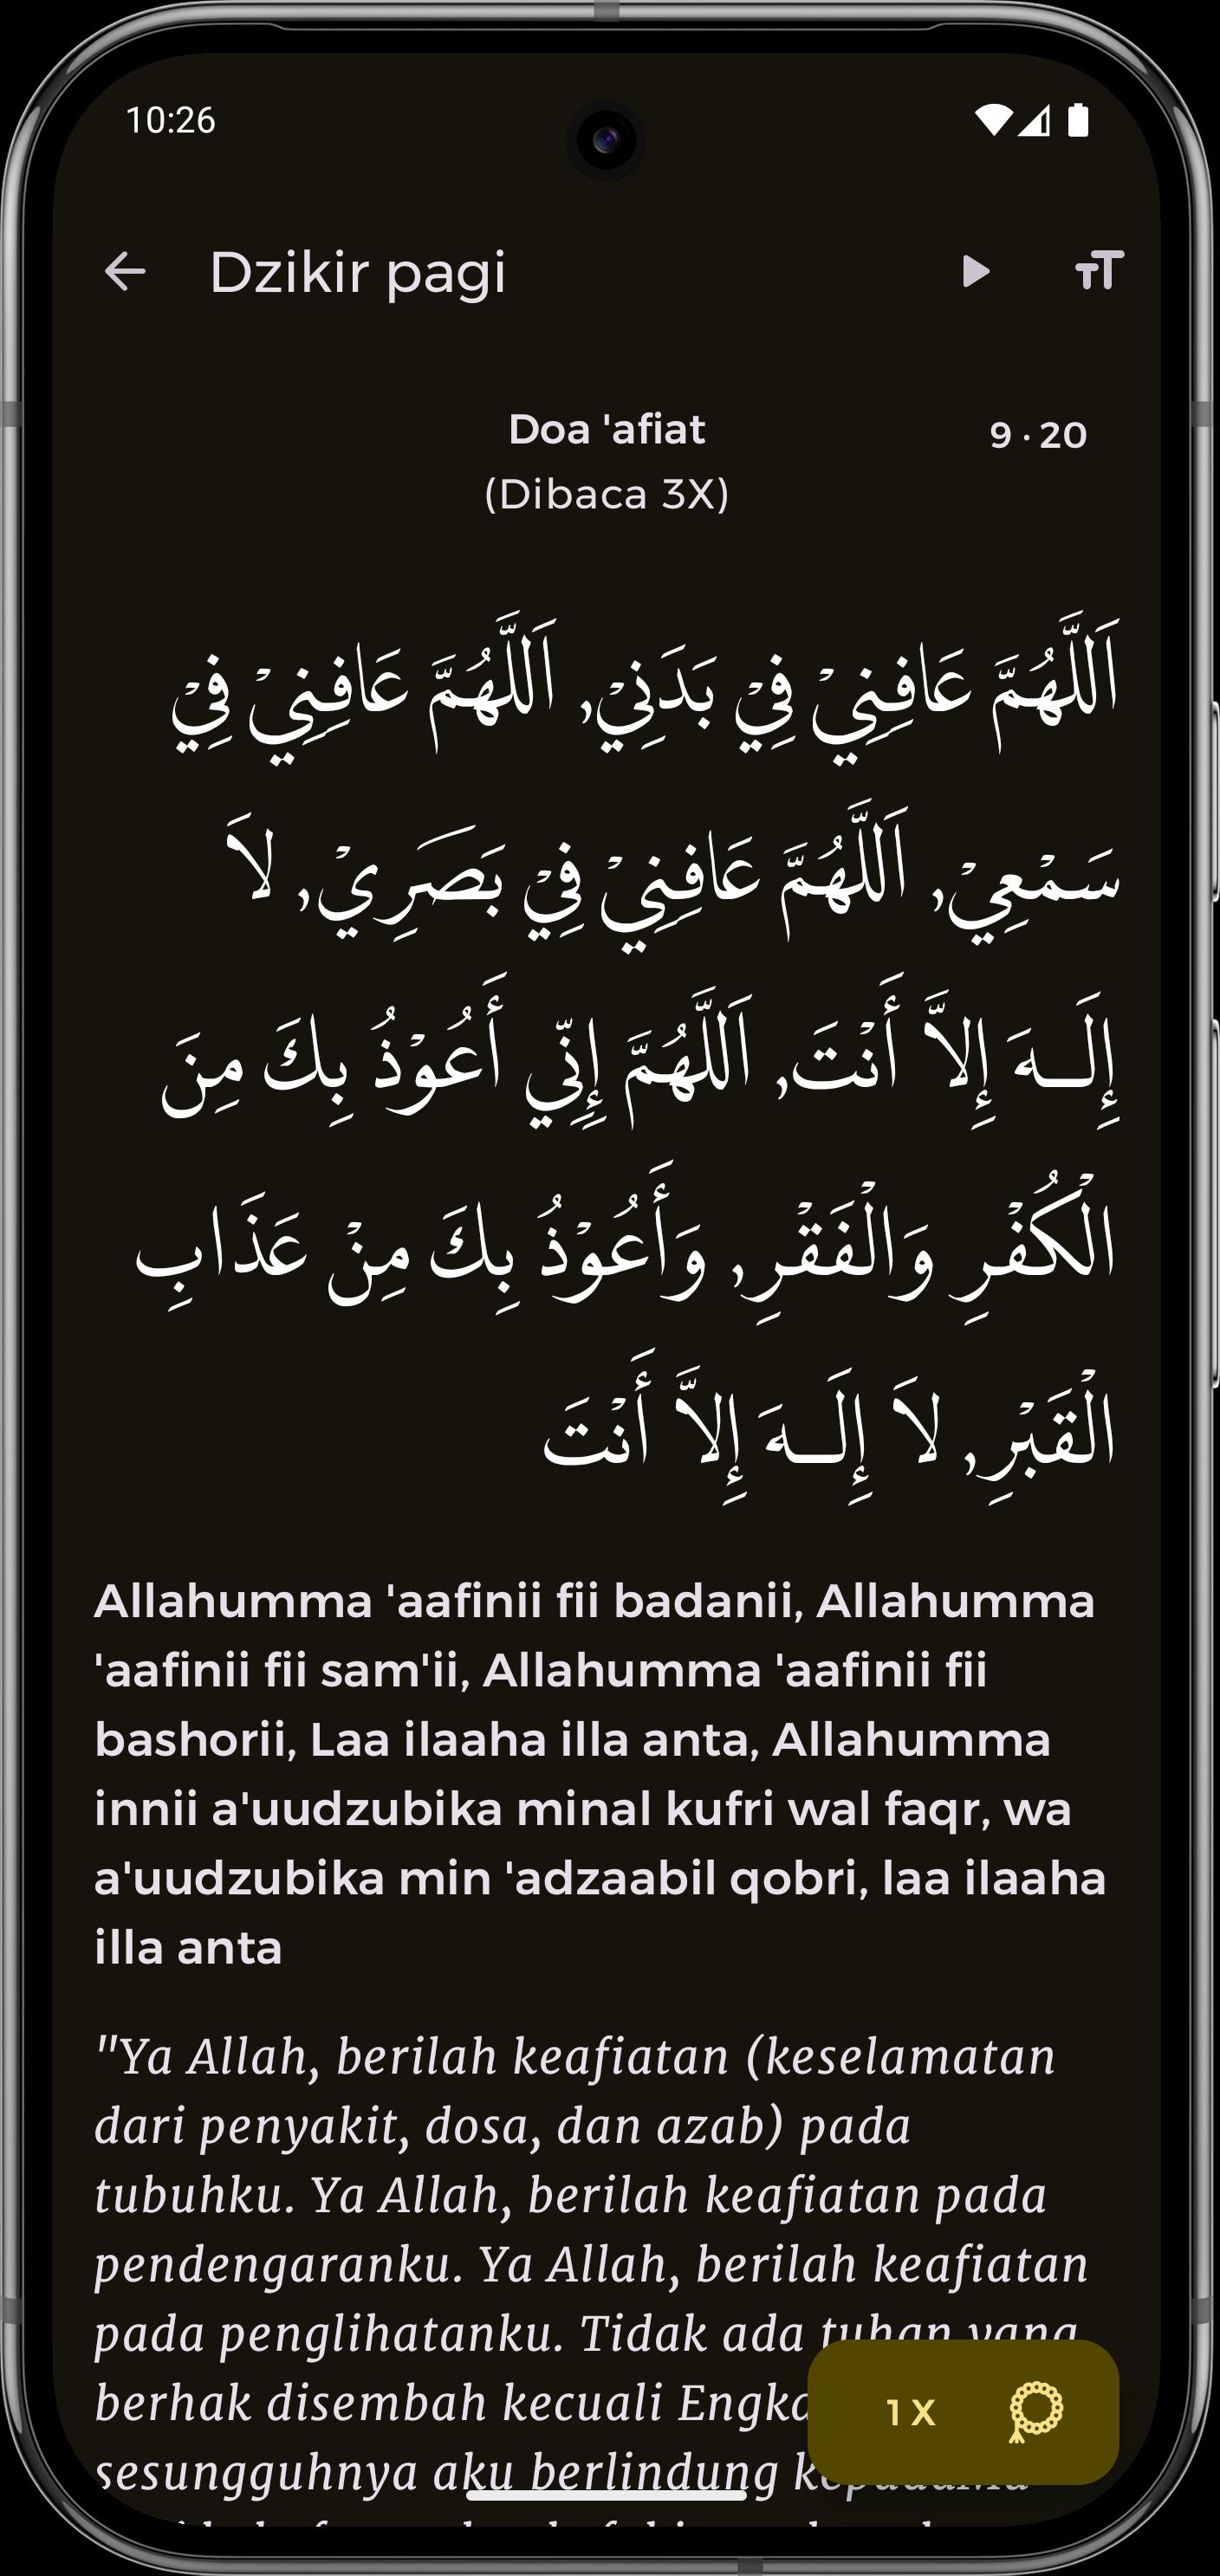 10:26
Dzikir pagi
Doa 'afiat
9 · 20
(Dibaca 3X)
اَللَّهُمَّ عَافِنِيْ فِيْ بَدَنِيْ, اَللَّهُمَّ عَافِنِيْ فِيْ
سَمْعِيْ, اَللَّهُمَّ عَافِنِيْ فِيْ بَصَرِيْ, لاَ
إِلَـهَ إِلاَّ أَنْتَ, اَللَّهُمَّ إِنِّي أَعُوْذُ بِكَ مِنَ
الْكُفْرِ وَالْفَقْرِ, وَأَعُوْذُ بِكَ مِنْ عَذَابِ
الْقَبْرِ, لاَ إِلَـهَ إِلاَّ أَنْتَ
Allahumma 'aafinii fii badanii, Allahumma
'aafinii fii sam'ii, Allahumma 'aafinii fii
bashorii, Laa ilaaha illa anta, Allahumma
innii a'uudzubika minal kufri wal faqr, wa
a'uudzubika min 'adzaabil qobri, laa ilaaha
illa anta
"Ya Allah, berilah keafiatan (keselamatan
dari penyakit, dosa, dan azab) pada
tubuhku. Ya Allah, berilah keafiatan pada
pendengaranku. Ya Allah, berilah keafiatan
pada penglihatanku. Tidak ada tuhan yang
berhak disembah kecuali Engka
sesungguhnya aku berlindung kepadaMu
1 X